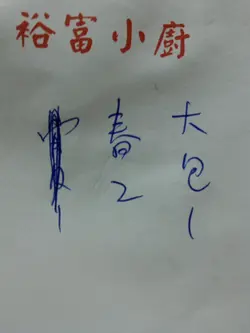 裕富小廚
大包1
春2